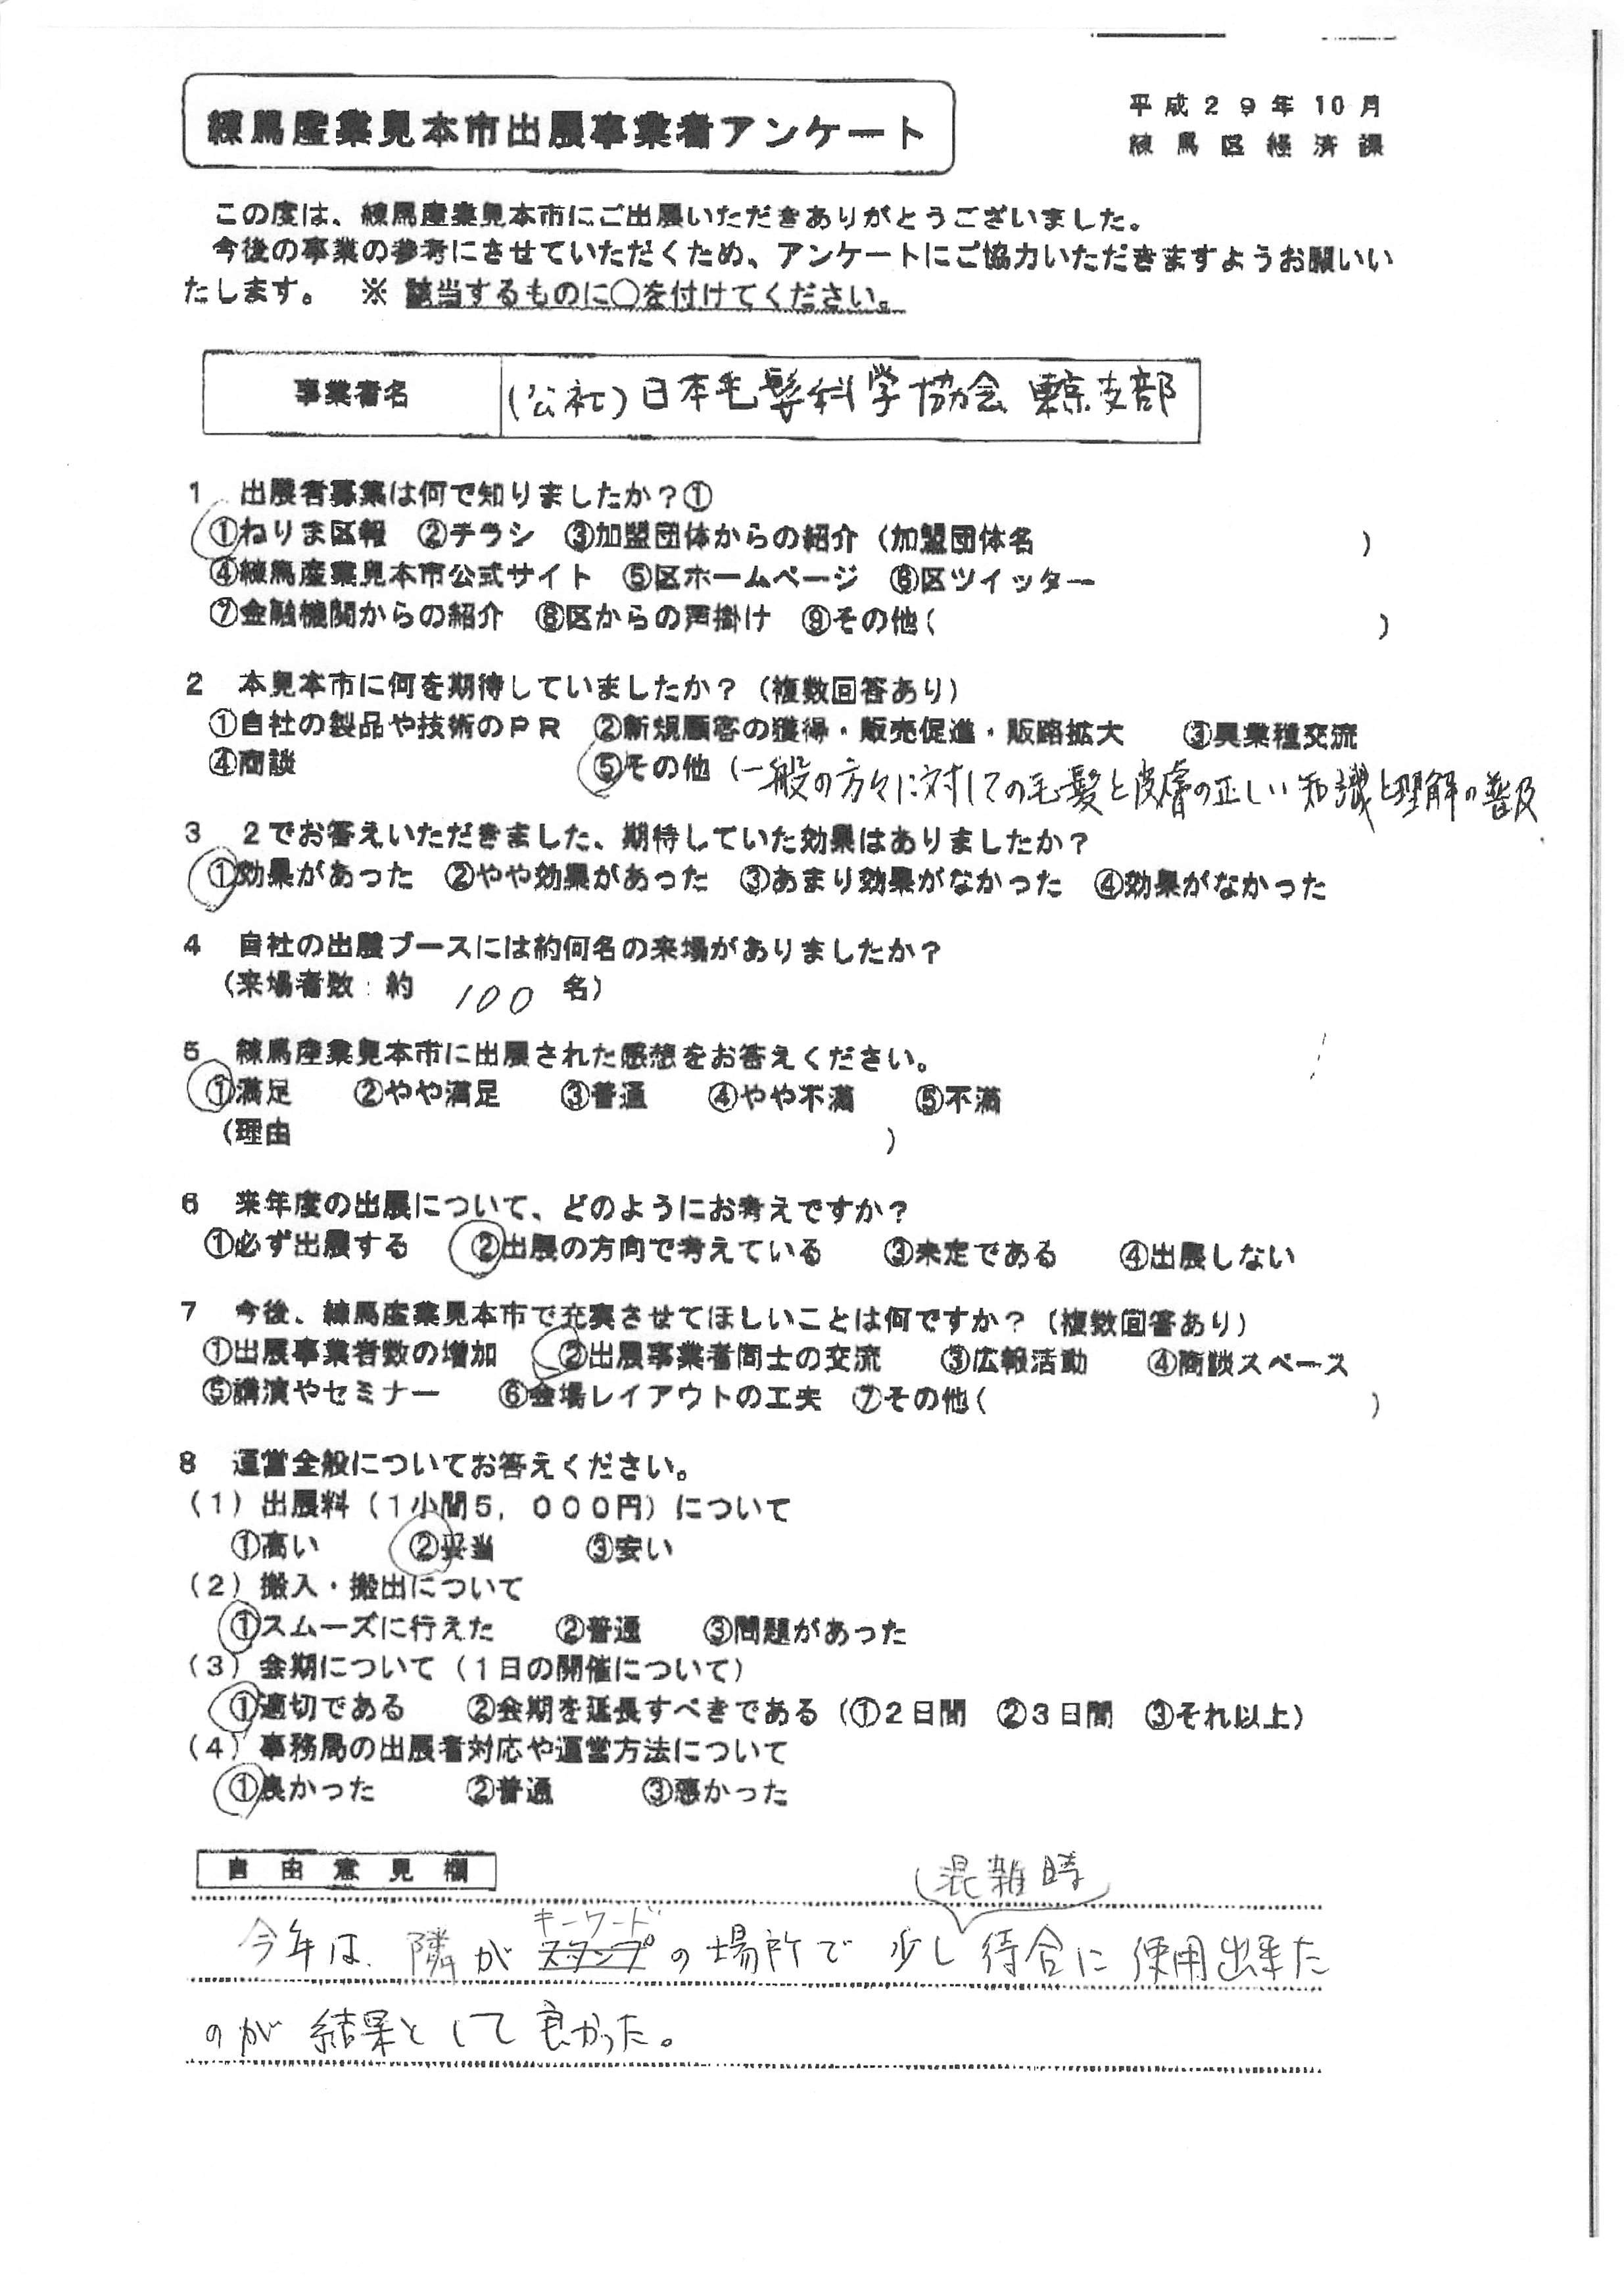 練馬産業見本市出展事業者アンケート
平成29年10月
練馬区経済課
この度は、練馬産業見本市にご出展いただきありがとうございました。
今後の事業の参考にさせていただくため、アンケートにご協力いただきますようお願いい
たします。 ※ 該当するものに○を付けてください。
事業者名 (公社)日本毛髪科学協会 東京支部
1 出展者募集は何で知りましたか?①
①ねりま区報 ②チラシ ③加盟団体からの紹介(加盟団体名 )
④練馬産業見本市公式サイト ⑤区ホームページ ⑥区ツイッター
⑦金融機関からの紹介 ⑧区からの声掛け ⑨その他( )
2 本見本市に何を期待していましたか?(複数回答あり)
①自社の製品や技術のPR ②新規顧客の獲得・販売促進・販路拡大 ③異業種交流
④商談 ⑤その他(一般の方々に対しての毛髪と皮膚の正しい知識と理解の普及
3 2でお答えいただきました、期待していた効果はありましたか?
①効果があった ②やや効果があった ③あまり効果がなかった ④効果がなかった
4 自社の出展ブースには約何名の来場がありましたか?
(来場者数:約 100 名)
5 練馬産業見本市に出展された感想をお答えください。
①満足 ②やや満足 ③普通 ④やや不満 ⑤不満
(理由 )
6 来年度の出展について、どのようにお考えですか?
①必ず出展する ②出展の方向で考えている ③未定である ④出展しない
7 今後、練馬産業見本市で充実させてほしいことは何ですか?(複数回答あり)
①出展事業者数の増加 ②出展事業者同士の交流 ③広報活動 ④商談スペース
⑤講演やセミナー ⑥会場レイアウトの工夫 ⑦その他( )
8 運営全般についてお答えください。
(1)出展料(1小間5,000円)について
①高い ②妥当 ③安い
(2)搬入・搬出について
①スムーズに行えた ②普通 ③問題があった
(3)会期について(1日の開催について)
①適切である ②会期を延長すべきである(①2日間 ②3日間 ③それ以上)
(4)事務局の出展者対応や運営方法について
①良かった ②普通 ③悪かった
自由意見欄
混雑時
キーワード
今年は、隣がスタンプの場所で 少し待合に使用出来た
のが 結果として良かった。